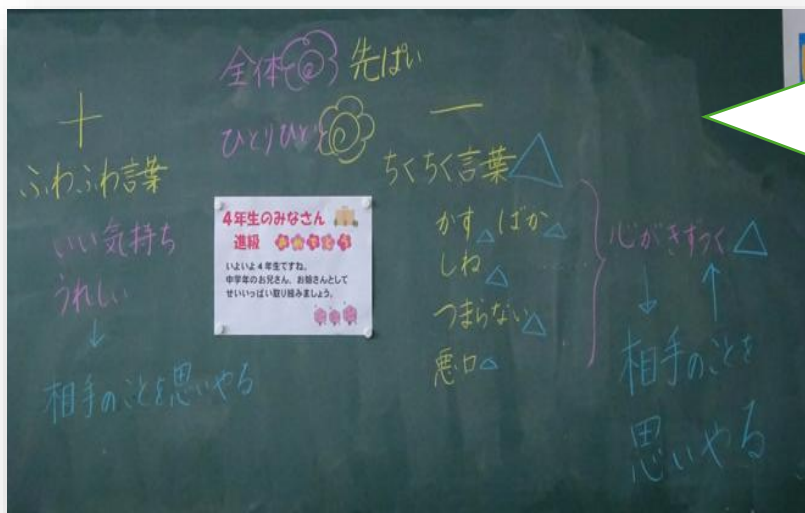 全体 先ぱい
ひとりひとり
＋
ふわふわ言葉
いい気持ち
うれしい
↓
相手のことを思いやる
4年生のみなさん
進級 おめでとう
いよいよ4年生ですね。
中学年のお兄さん、お姉さんとして
せいいっぱい取り組みましょう。
ー
ちくちく言葉△
かす△ ばか△
しね△
つまらない△
悪口△
心がきずつく△
↓ ↑
相手のことを
思いやる